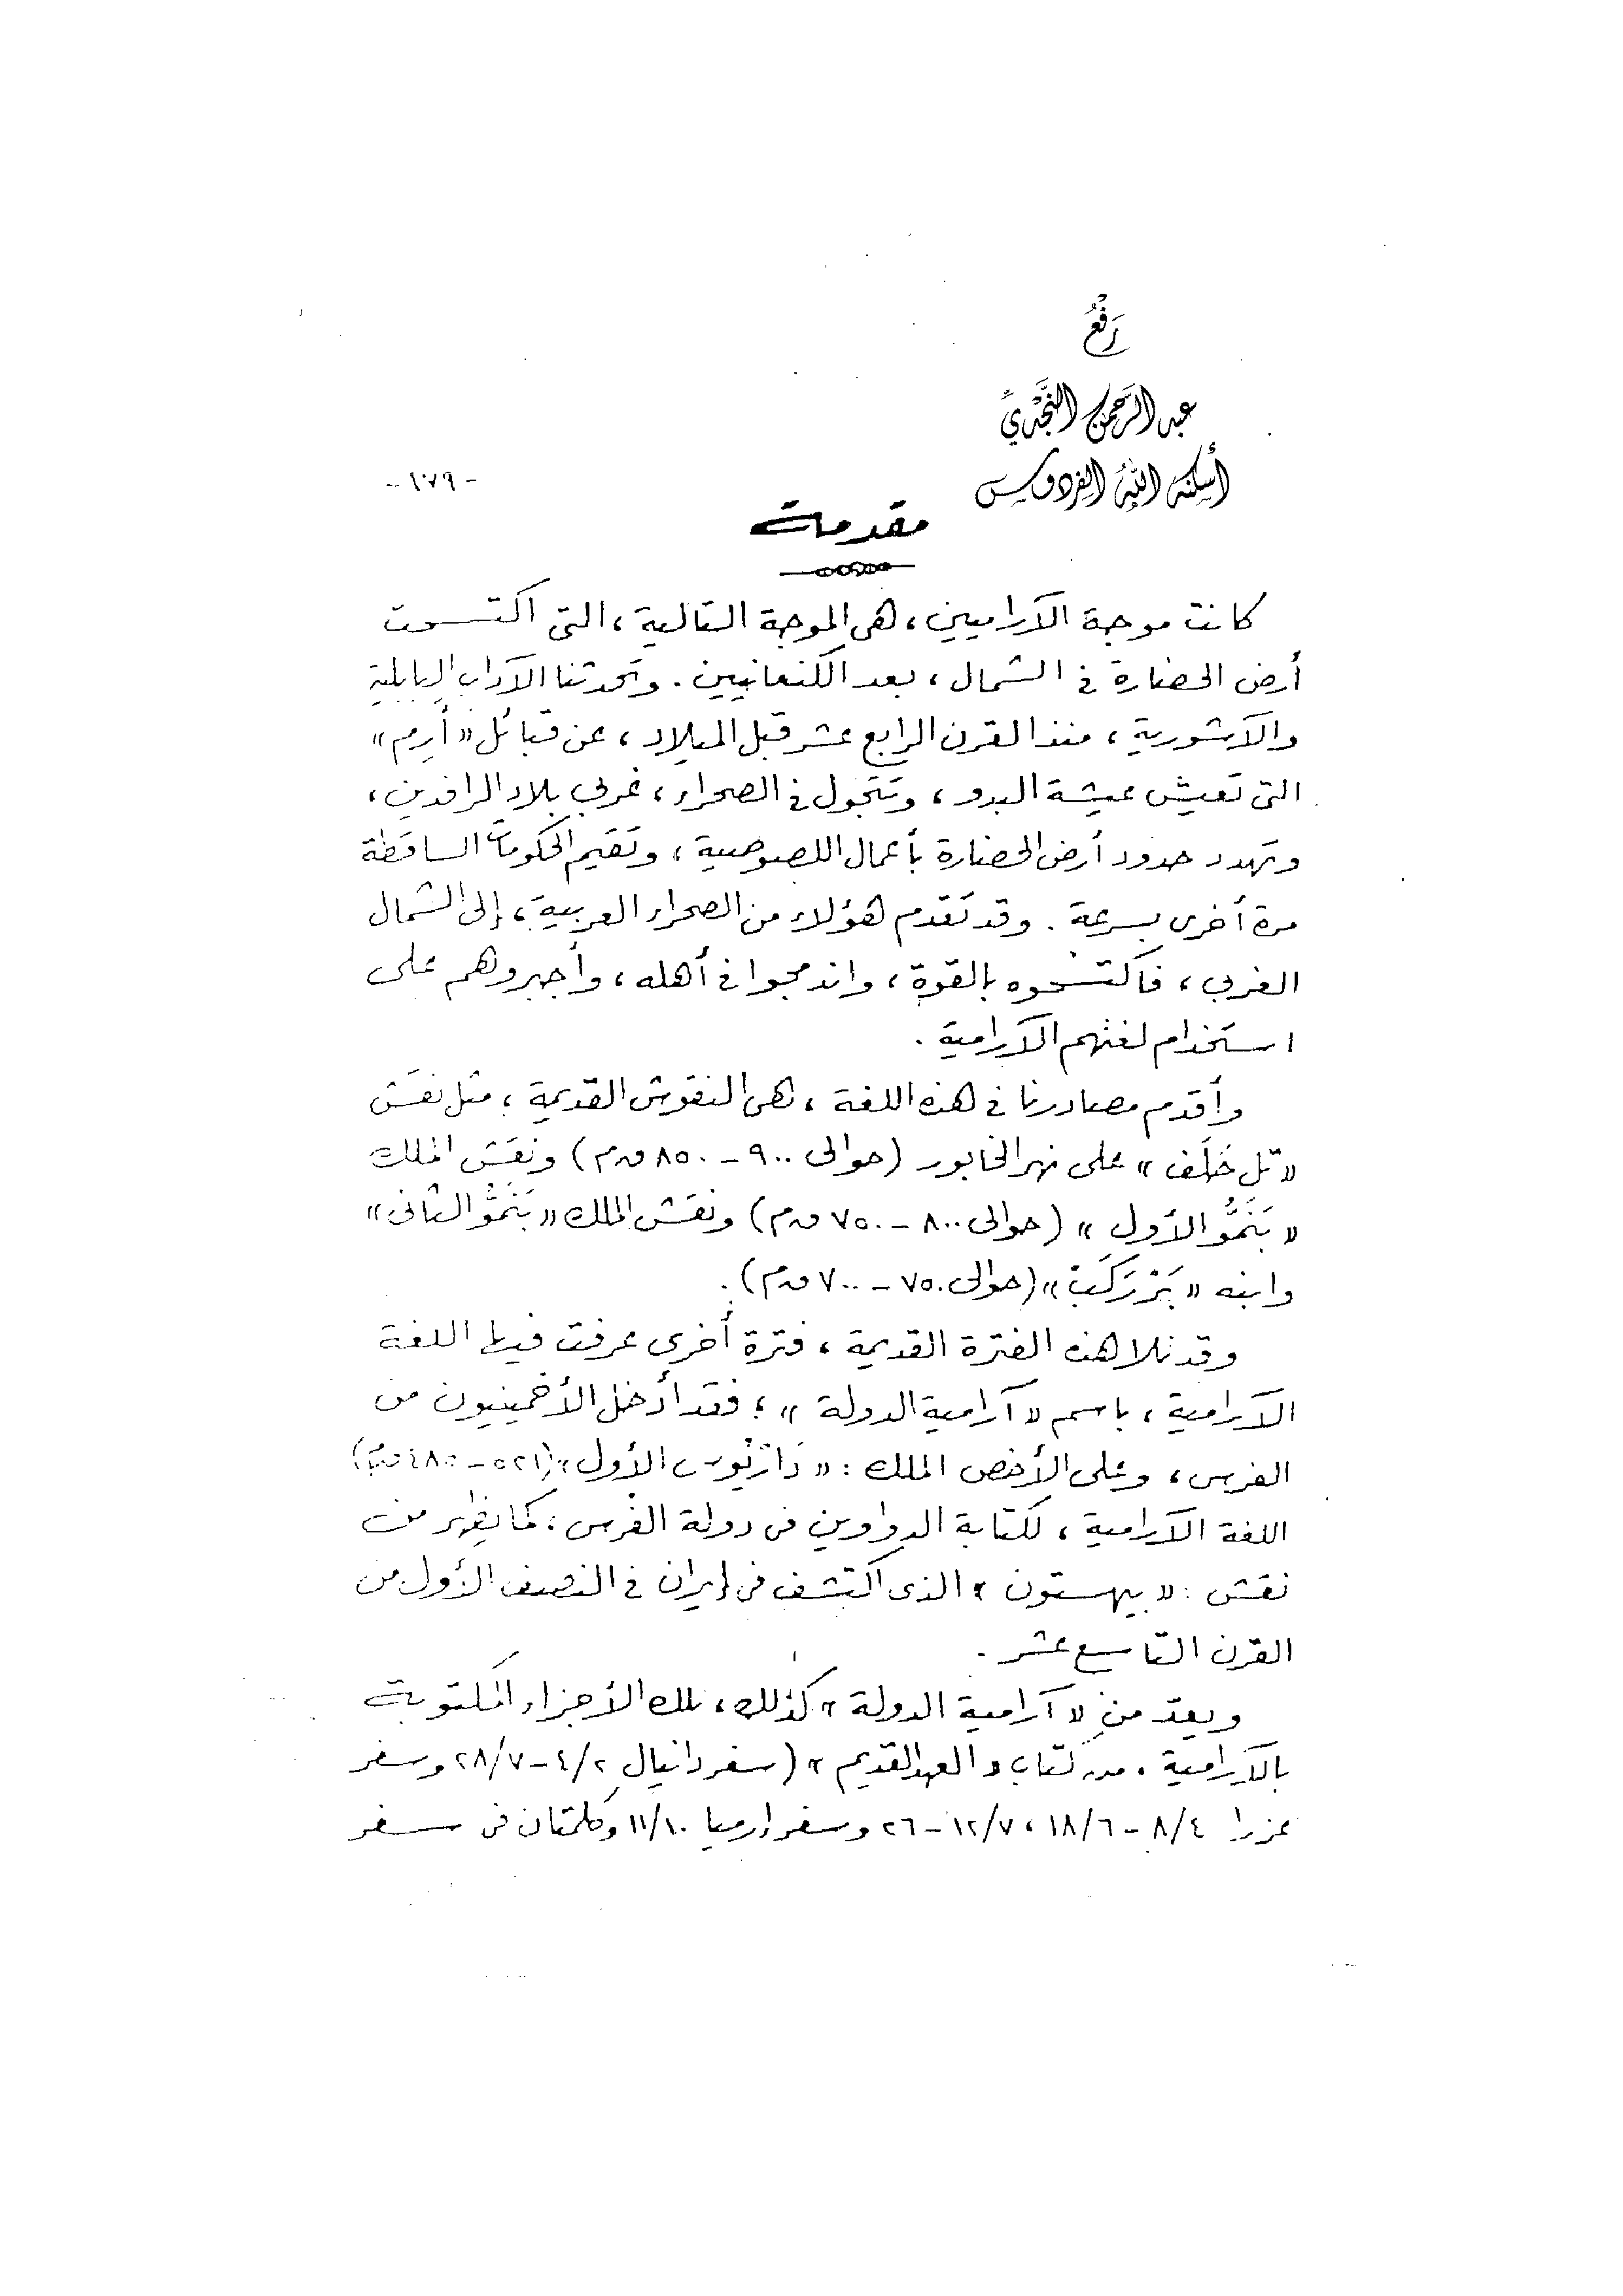 رَفْعُ
عبد الرَّحمن النَّجْدِيِّ
أسكنه اللهُ الفردوس
- ١٧٩ -
مقدمة
كانت موجة الآراميين، هى الموجة التالية، التى اكتسحت
أرض الحضارة فى الشمال، بعد الكنعانيين. وتحدثنا الآداب البابلية
والآشورية، منذ القرن الرابع عشر قبل الميلاد، عن قبائل «أرم»
التى تعيش عيشة البدو، وتتجول فى الصحراء، غربي بلاد الرافدين،
وتهدد حدود أرض الحضارة بأعمال اللصوصية، وتقيم الحكومات الساقطة
مرة أخرى بسرعة. وقد تقدم هؤلاء من الصحراء العربية، إلى الشمال
الغربى، فاكتسحوه بالقوة، واندمجوا فى أهله، وأجبروهم على
استخدام لغتهم الآرامية.
وأقدم مصادرنا فى هذه اللغة، هى النقوش القديمة، مثل نقش
«تل خَلَف» على نهر الخابور (حوالى ٩٠٠ - ٨٥٠ ق.م) ونقش الملك
«بَنَمُّو الأول» (حوالى ٨٠٠ - ٧٥٠ ق.م) ونقش الملك «بَنَمُّو الثانى»
وابنه «بَرْرَكَبْ» (حوالى ٧٥٠ - ٧٠٠ ق.م).
وقد تلا هذه الفترة القديمة، فترة أخرى عرفت فيها اللغة
الآرامية، باسم «آرامية الدولة»؛ فقد أدخل الأخمينيون من
الفرس، وعلى الأخص الملك: «دَارْيُوس الأول» (٥٢١ - ٤٨٥ ق.م)
اللغة الآرامية، لكتابة الدواوين فى دولة الفرس، كما يظهر من
نقش: «بيهستون» الذى اكتشف فى إيران فى النصف الأول من
القرن التاسع عشر.
ويعدّ من «آرامية الدولة» كذلك، تلك الأجزاء المكتوبة
بالآرامية، من كتاب «العهد القديم» (سفر دانيال ٤/٢ - ٢٨/٧ وسفر
عزرا ٨/٤ - ١٨/٦، ١٢/٧ - ٢٦ وسفر إرميا ١١/١٠ وكلمتان فى سفر